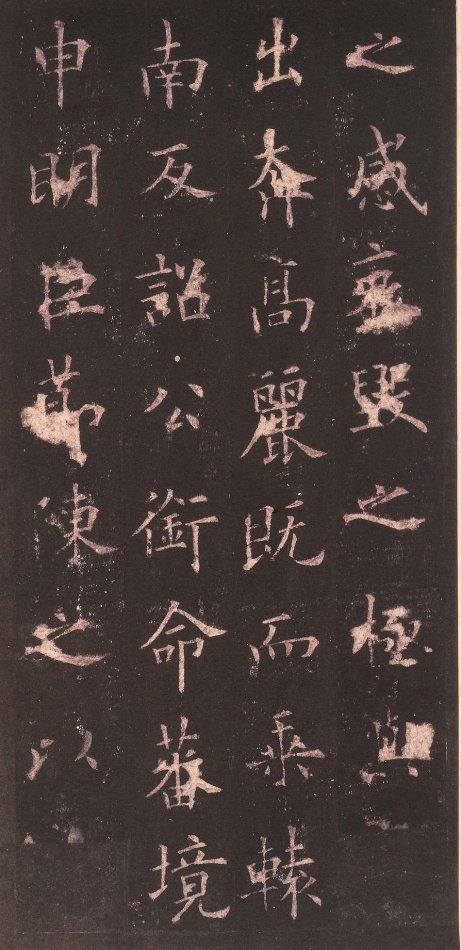 之感垂毀之極與
出奔高麗既而乘轅
南反詔公銜命蕃境
申明臣節陳之以